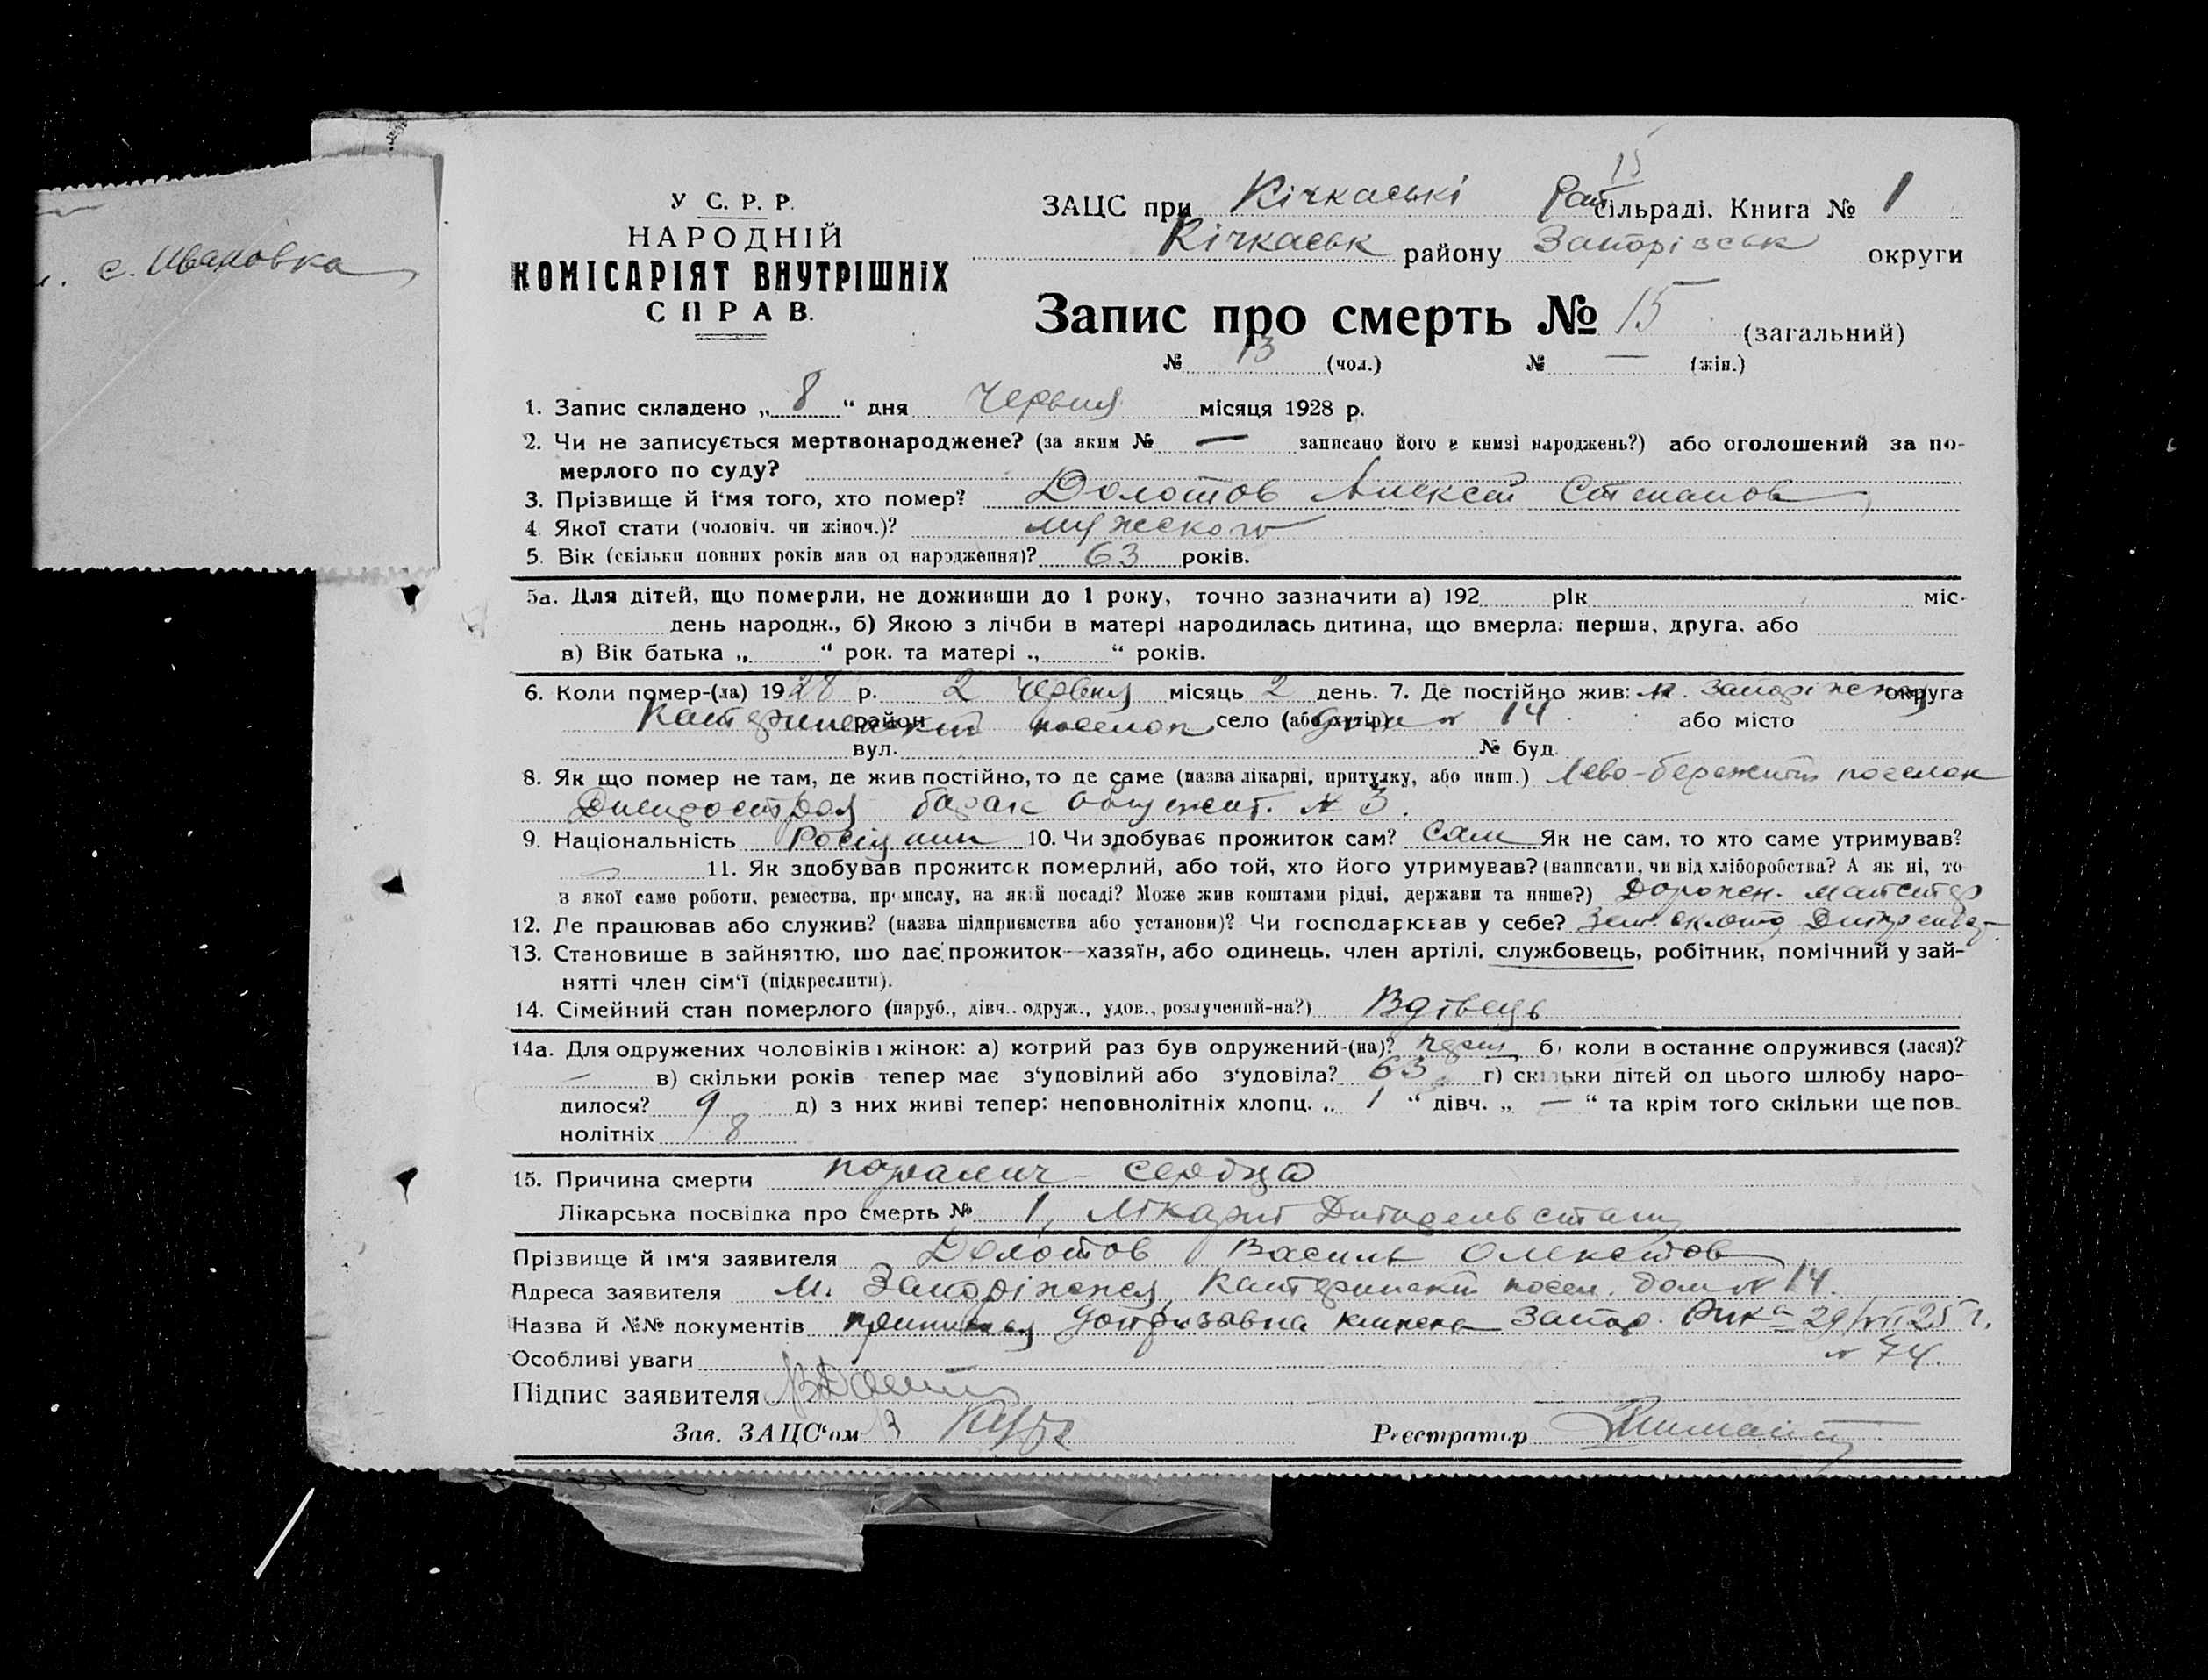 15
У С. Р. Р.
НАРОДНІЙ
КОМІСАРІЯТ ВНУТРІШНІХ
СПРАВ.
с. Ивановка
ЗАЦС при Кічкаські Рай сільраді. Книга № 1
Кічкаськ району Запорізськ округи
Запис про смерть № 15 (загальний)
№ 13 (чол.) № — (жін.)
1. Запис складено „ 8 “ дня Червня місяця 1928 р.
2. Чи не записується мертвонароджене? (за яким № — записано його в книзі народжень?) або оголошений за по-
мерлого по суду?
3. Прізвище й і'мя того, хто помер? Долотов Алексей Степанов
4 Якої стати (чоловіч. чи жіноч.)? мужского
5. Вік (скільки повних років мав од народження)? 63 років.
5а. Для дітей, що померли, не доживши до 1 року, точно зазначити а) 192 рік міс.
день народж., б) Якою з лічби в матері народилась дитина, що вмерла: перша, друга, або
в) Вік батька „ “ рок. та матері „ “ років.
6. Коли помер-(ла) 1928 р. 2 Червня місяць 2 день. 7. Де постійно жив: м. Запоріжжя округа
район поселок село (або хутір) № 14 або місто
вул. № буд.
8. Як що помер не там, де жив постійно, то де саме (назва лікарні, притулку, або инш.) Лево-бережний поселок
Днепростроя барак общежит. № 3.
9. Національність Росіянин 10. Чи здобуває прожиток сам? Сам Як не сам, то хто саме утримував?
— 11. Як здобував прожиток померлий, або той, хто його утримував? (написати, чи від хліборобства? А як ні, то
з якої саме роботи, ремества, промислу, на якій посаді? Може жив коштами рідні, держави та инше?) Дорожн. майстер
12. Де працював або служив? (назва підприємства або установи)? Чи господарював у себе?
13. Становише в зайняттю, що дає прожиток—хазяїн, або одинець, член артілі, службовець, робітник, помічний у зай-
нятті член сім'ї (підкреслити).
14. Сімейний стан померлого (паруб., дівч.. одруж., удов., розлучений-на?) Вдівець
14а. Для одружених чоловіків і жінок: а) котрий раз був одружений-(на)? б) коли востаннє одружився (лася)?
— в) скільки років тепер має з'удовілий або з'удовіла? 63 г) скільки дітей од цього шлюбу наро-
дилося? 9 д) з них живі тепер: неповнолітніх хлопц. „ 1 “ дівч. „ — “ та крім того скільки ще пов-
нолітніх 8
15. Причина смерти паралич сердца
Лікарська посвідка про смерть № 1, Лікарні
Прізвище й ім'я заявителя Долотов Василь Олексійов
Адреса заявителя м. Запоріжжя, посел. дом № 14.
Назва й №№ документів допризовна книжка Запор. 29/VII 25 г.
№ 74.
Особливі уваги
Підпис заявителя
Зав. ЗАЦС'ом
Реєстратор